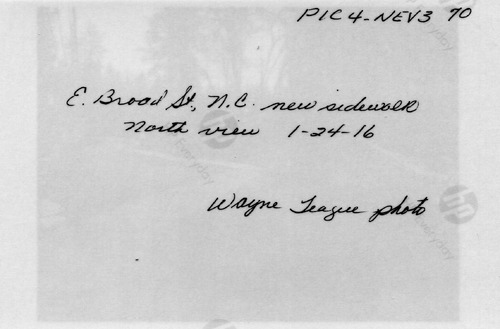 PIC4-NEV3 70
E. Broad St, N.C. new sidewalk
North view 1-24-16
Wayne Teague photo